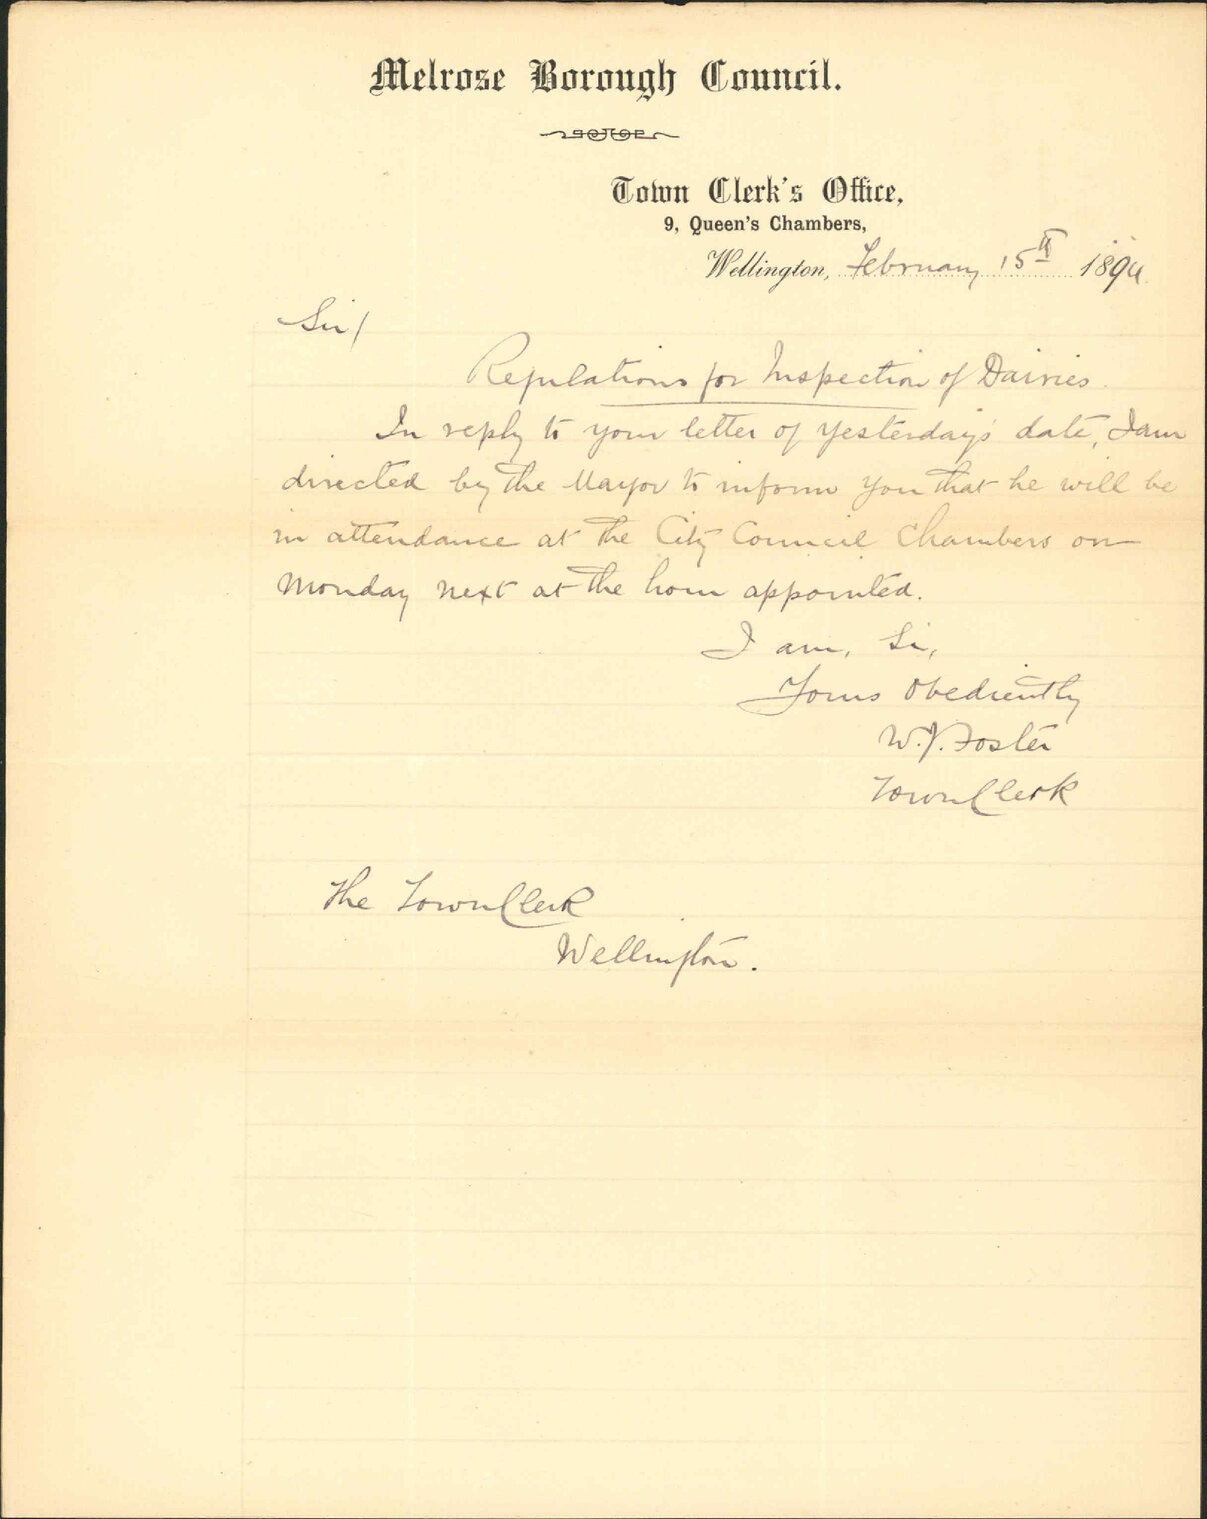 Melrose Borough Council.
Town Clerk's Office,
9, Queen's Chambers,
Wellington, February 15th 1894
Sir/
Regulations for Inspection of Dairies.
In reply to your letter of yesterday's date, I am
directed by the Mayor to inform you that he will be
in attendance at the City Council Chambers on
Monday next at the hour appointed.
I am, Sir,
Yours Obediently
W.J. Foster
Town Clerk
The Town Clerk
Wellington.